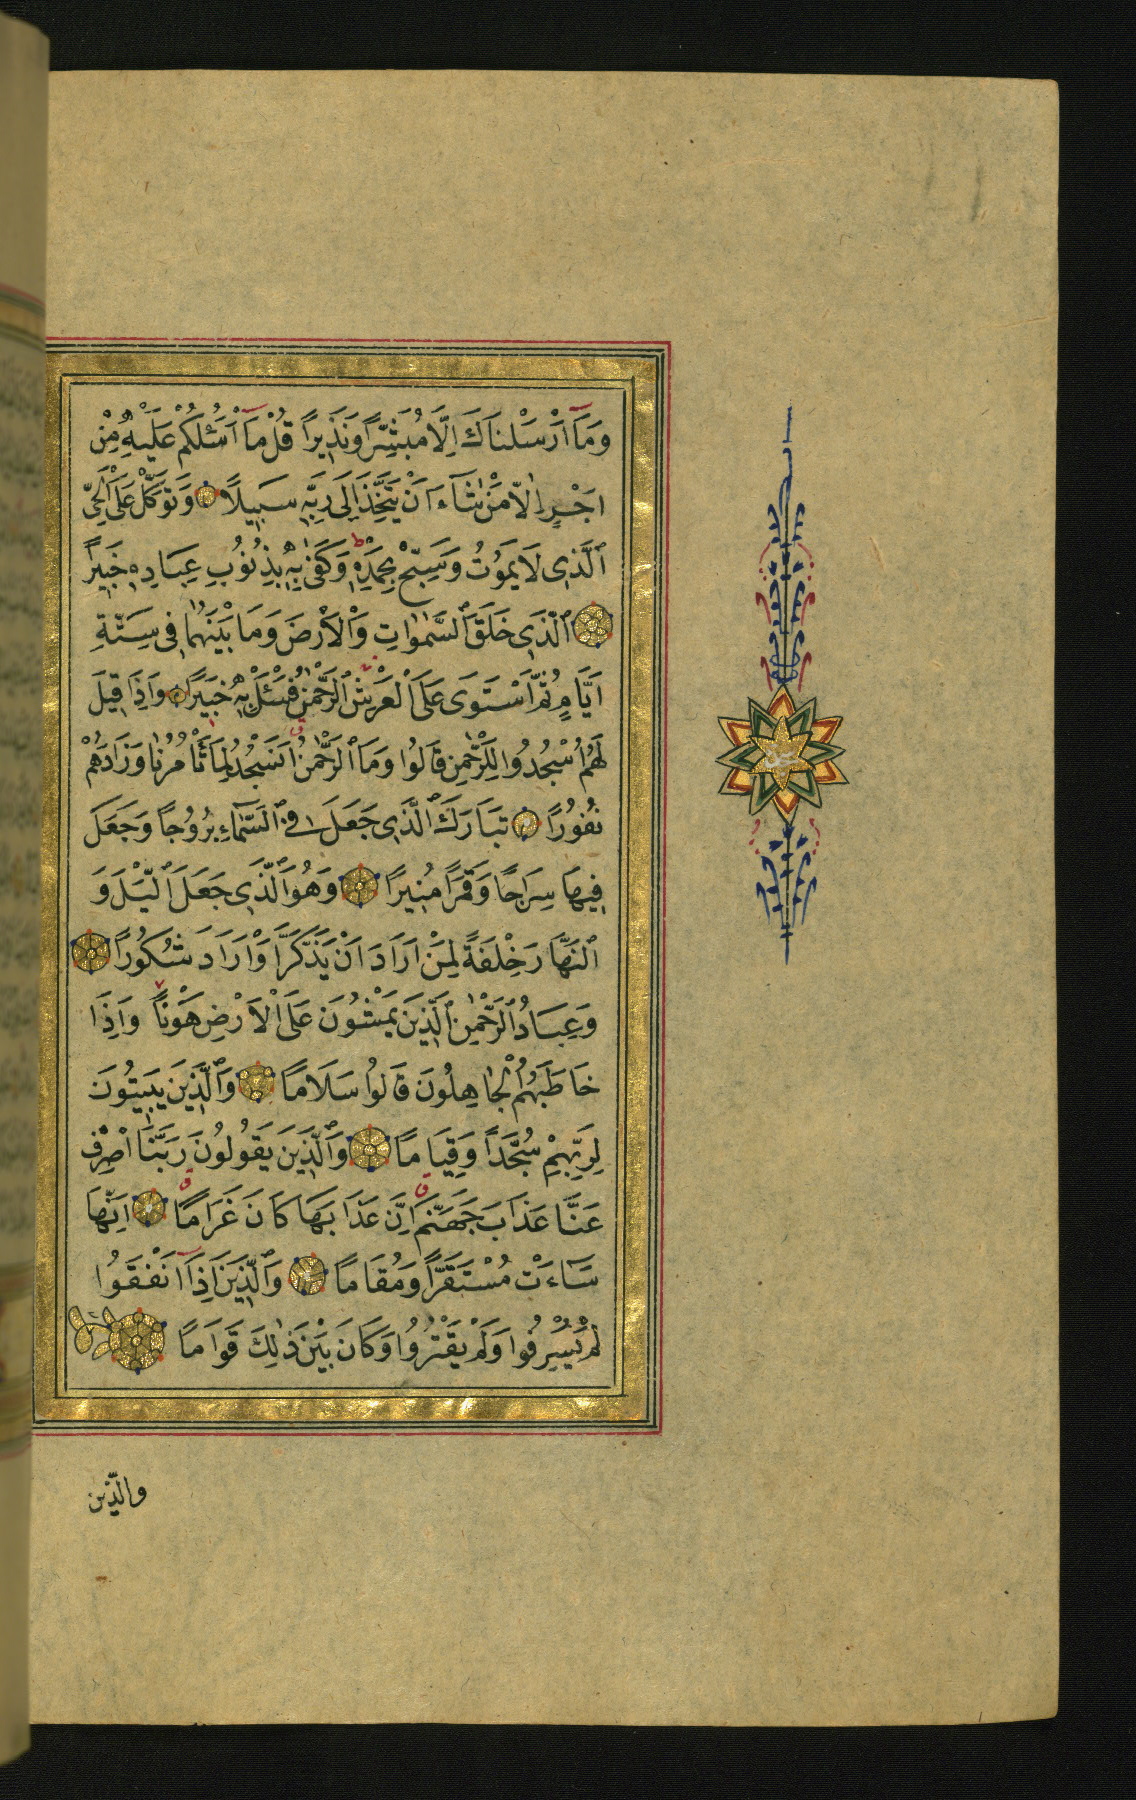 وَمَآ اَرْسَلْنَاكَ اِلَّا مُبَشِّرًا وَنَذِيرًا قُلْ مَآ اَسْـَٔلُكُمْ عَلَيْهِ مِنْ
اَجْرٍ اِلَّا مَنْ شَآءَ اَنْ يَتَّخِذَ اِلَى رَبِّهِ سَبِيلًا وَتَوَكَّلْ عَلَى الْحَيِّ
الَّذِى لَا يَمُوتُ وَسَبِّحْ بِحَمْدِهِ وَكَفٰى بِهِ بِذُنُوبِ عِبَادِهِ خَبِيرًا
الَّذِى خَلَقَ السَّمٰوَاتِ وَالْاَرْضَ وَمَا بَيْنَهُمَا فِى سِتَّةِ
اَيَّامٍ ثُمَّ اسْتَوَى عَلَى الْعَرْشِ الرَّحْمٰنُ فَسْـَٔلْ بِهِ خَبِيرًا وَاِذَا قِيلَ
لَهُمُ اسْجُدُوا لِلرَّحْمٰنِ قَالُوا وَمَا الرَّحْمٰنُ اَنَسْجُدُ لِمَا تَأْمُرُنَا وَزَادَهُمْ
نُفُورًا تَبَارَكَ الَّذِى جَعَلَ فِى السَّمَآءِ بُرُوجًا وَجَعَلَ
فِيهَا سِرَاجًا وَقَمَرًا مُنِيرًا وَهُوَ الَّذِى جَعَلَ الَّيْلَ وَ
النَّهَارَ خِلْفَةً لِمَنْ اَرَادَ اَنْ يَذَّكَّرَ اَوْ اَرَادَ شُكُورًا
وَعِبَادُ الرَّحْمٰنِ الَّذِينَ يَمْشُونَ عَلَى الْاَرْضِ هَوْنًا وَاِذَا
خَاطَبَهُمُ الْجَاهِلُونَ قَالُوا سَلَامًا وَالَّذِينَ يَبِيتُونَ
لِرَبِّهِمْ سُجَّدًا وَقِيَامًا وَالَّذِينَ يَقُولُونَ رَبَّنَا اصْرِفْ
عَنَّا عَذَابَ جَهَنَّمَ اِنَّ عَذَابَهَا كَانَ غَرَامًا اِنَّهَا
سَآءَتْ مُسْتَقَرًّا وَمُقَامًا وَالَّذِينَ اِذَآ اَنْفَقُوا
لَمْ يُسْرِفُوا وَلَمْ يَقْتُرُوا وَكَانَ بَيْنَ ذٰلِكَ قَوَامًا
والّذين